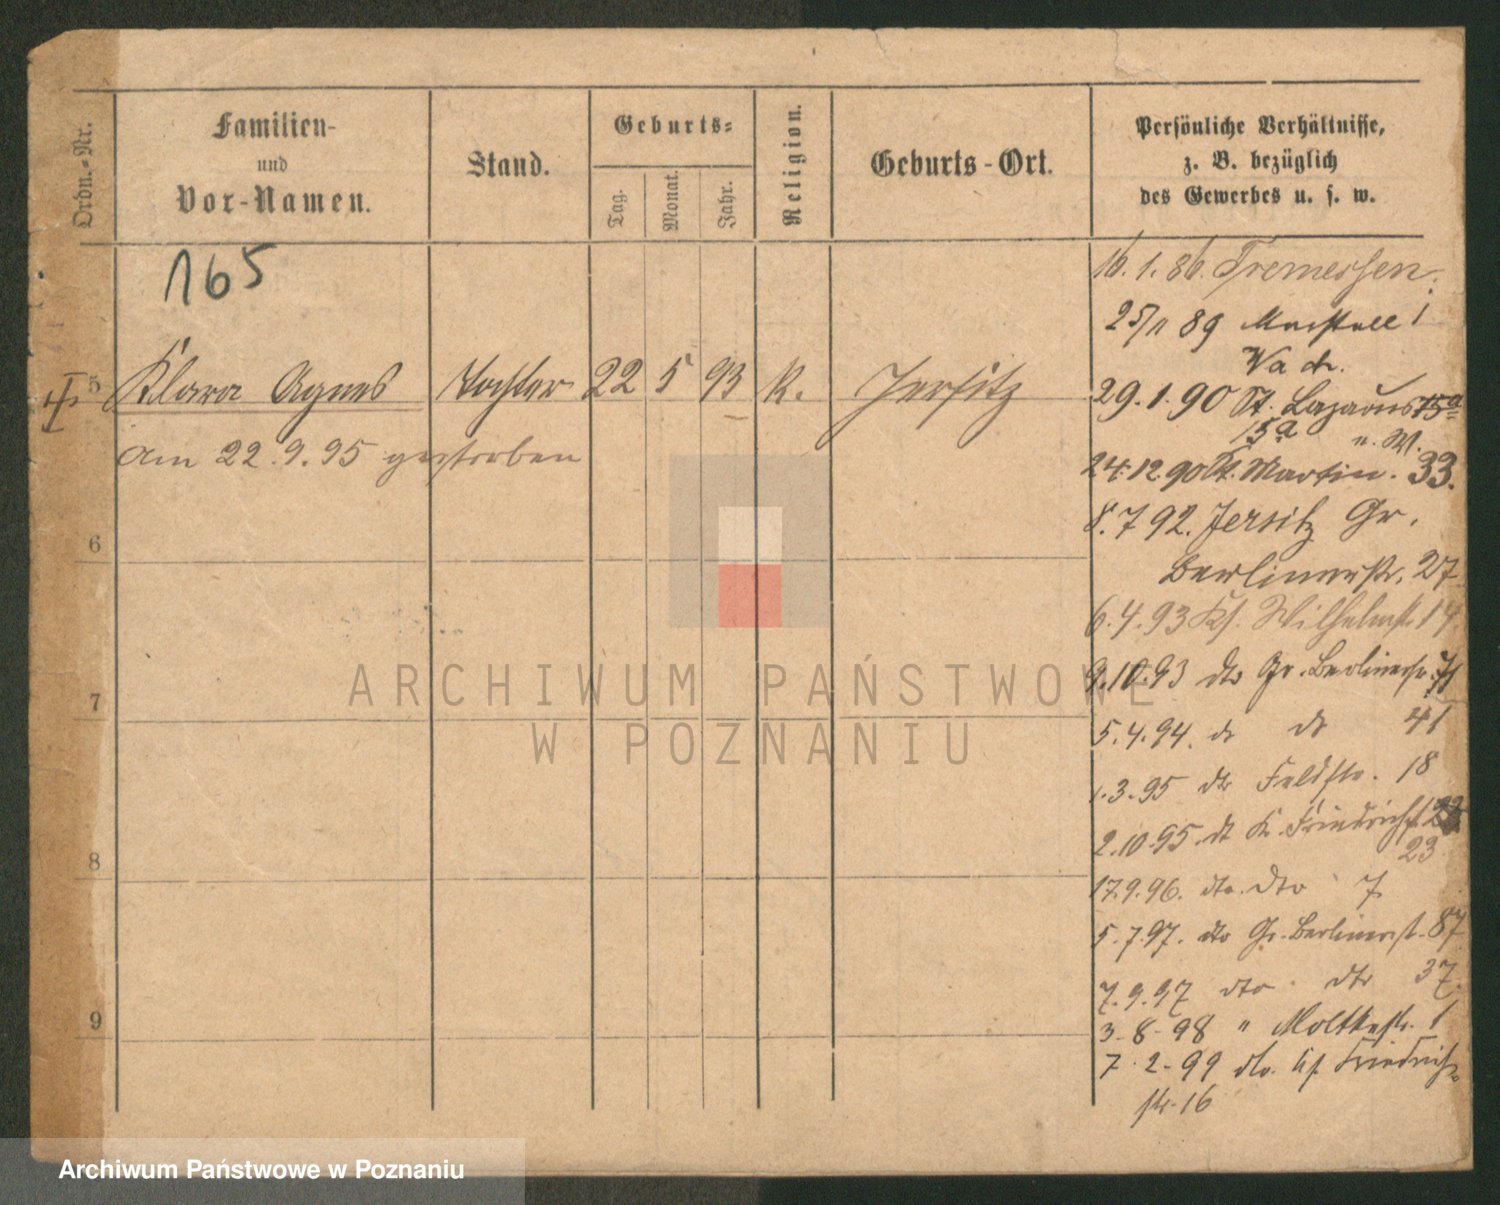 Ordn.-Nr.
Familien-
und
Vor-Namen.
Stand.
Geburts-
Tag.
Monat.
Jahr.
Religion.
Geburts-Ort.
Persönliche Verhältnisse,
z. B. bezüglich
des Gewerbes u. s. w.
165
5 Klara Agnes Tochter 22 5 93 K. Jersitz
am 22.9.95 gestorben
6
7
8
9
16.1.86. Tremessen.
25/11 89 1
29.1.90 St. Lazarus 15a
15a u. W.
24.12.90 St. Martin. 33.
8.7 92. Jersitz Gr.
Berlinerstr. 27
6.4.93 Ks. Wilhelmst. 14
9.10.93 dto Gr. Berlinerstr. 71
5.4.94. do do 41
1.3.95 dto Feldstr. 18
2.10.95. dt K. Friedrichst.
23
17.9.96. dto. dto 7
5.7.97. dto Gr. Berlinerst. 87
7.9.97 dto dto 37.
3-8-98 " Moltkestr. 1
7.2-99 dto. Ks. Friedrich=
str. 16
ARCHIWUM PAŃSTWOWE
W POZNANIU
Archiwum Państwowe w Poznaniu